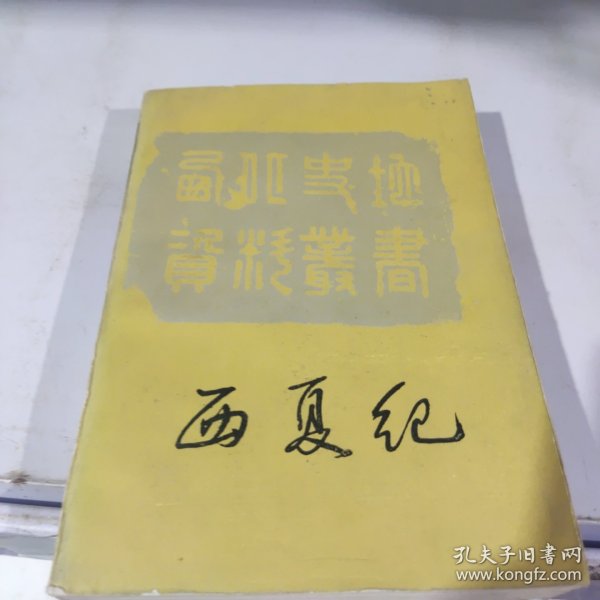 西北史地
資料叢書
西夏纪
孔夫子旧书网
www.kongfz.com